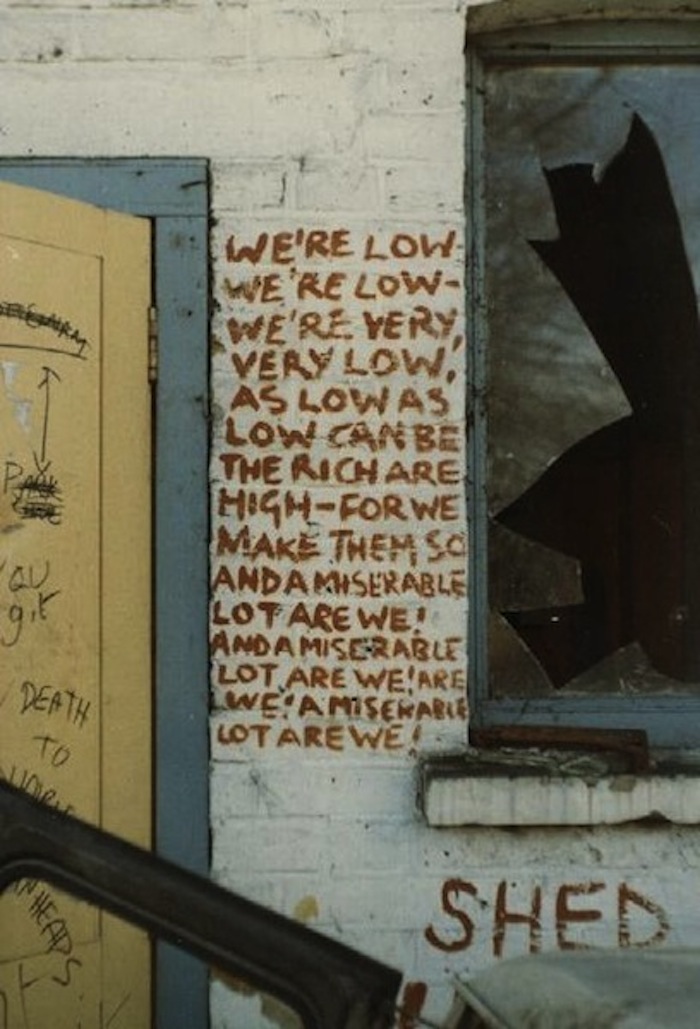 WE'RE LOW-
WE'RE LOW-
WE'RE VERY,
VERY LOW,
AS LOW AS
LOW CAN BE
THE RICH ARE
HIGH-FOR WE
MAKE THEM SO
AND A MISERABLE
LOT ARE WE!
AND A MISERABLE
LOT ARE WE! ARE
WE! A MISERABLE
LOT ARE WE!
YOU
git
DEATH
TO
HEADS
SHED